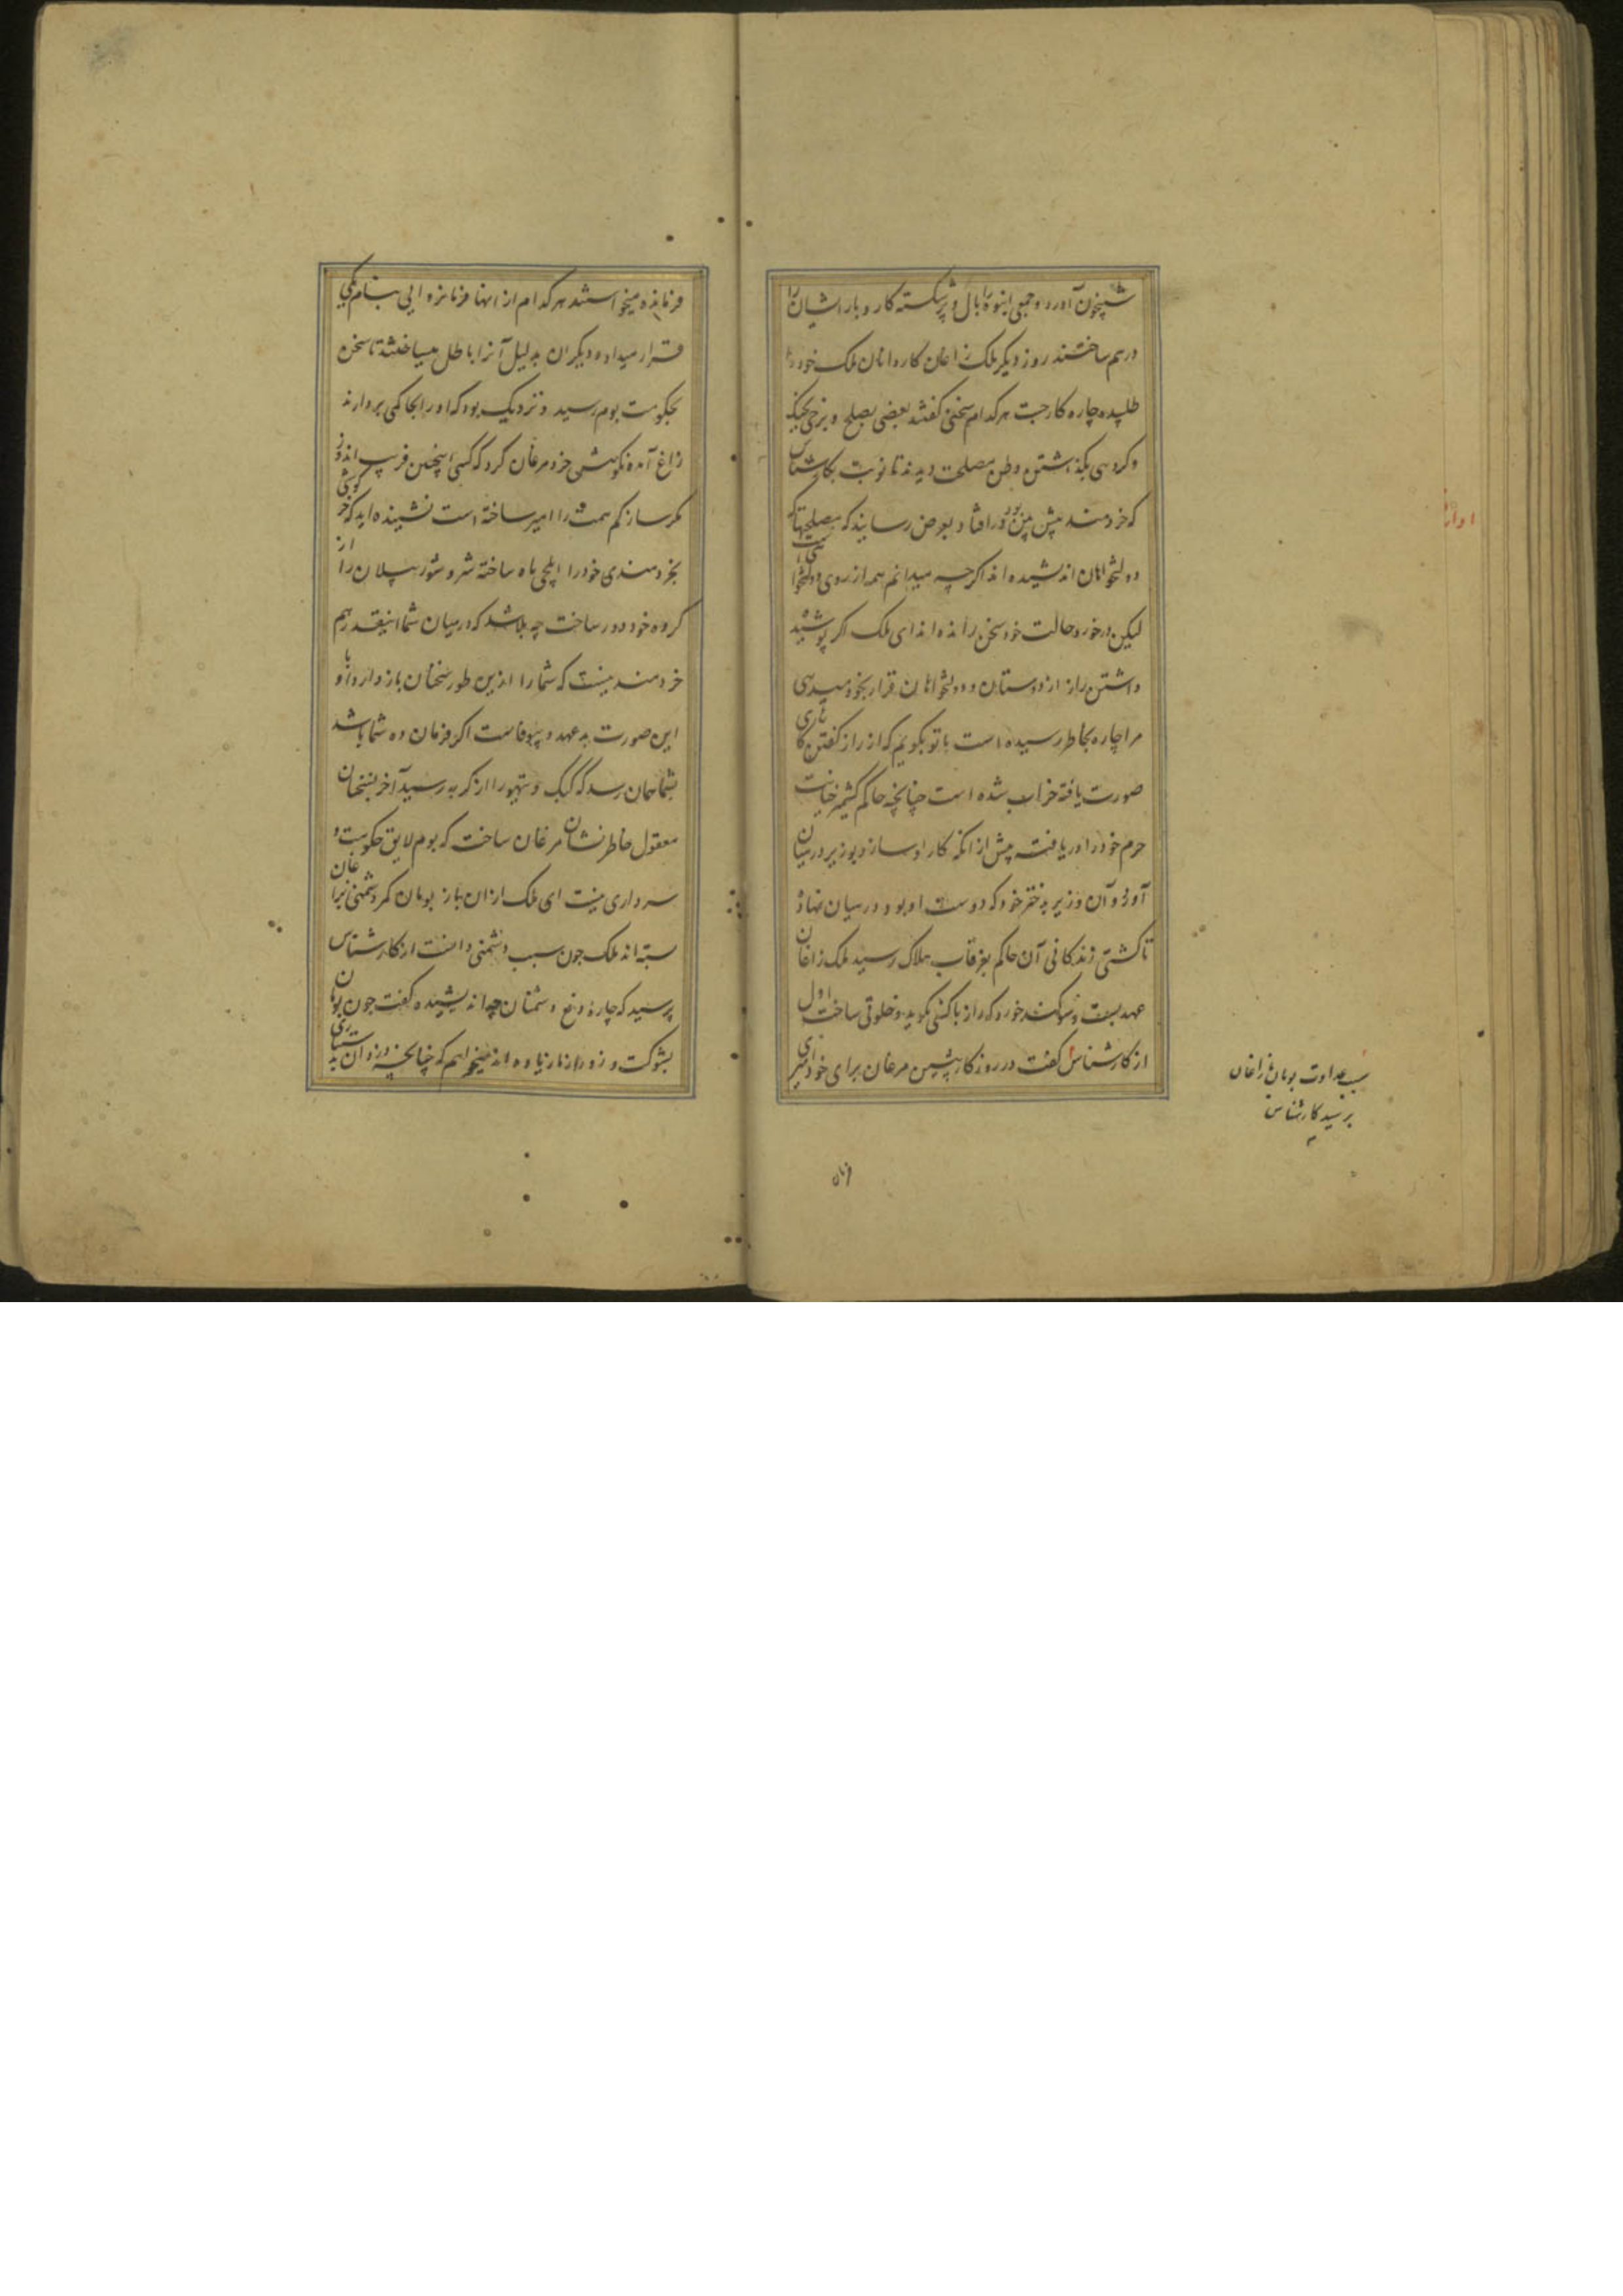 شبیخون آورد و جمعی انبوه را بال و پر شکسته کار و بار ایشان را
درهم ساختند روز دیگر ملک زاغان کاردانان ملک خود را
طلبیده چاره کار جست هر کدام سخنی گفتند بعضی بصلح و برخی بجنگ
و گروهی بگذاشتن وطن مصلحت دیدند تا نوبت بکارشناس
که خردمند پیش بین بود در افتاد و بعرض رسانید که مصلحتها که
دولتخواهان اندیشیده اند اگرچه میدانم همه از روی دولتخواهی است
لیکن درخور حالت خود سخن رانده اند ای ملک اگر پوشیده
داشتن راز از دوستان و دولتخواهان قرار بخود میدهی
مرا چاره بخاطر رسیده است با تو بگویم که از راز گفتن کارهای
صورت یافته خراب شده است چنانچه حاکم کشمیر خیانت
حرم خود را دریافت پیش از آنکه کار او سازد بوزیر در میان
آورد و آن وزیر بدختر خود که دوست او بود در میان نهاد
تا کشتی زندکانی آن حاکم بغرقاب هلاک رسید ملک زاغان
عهد بست و سوکند خورد که راز با کسی نگوید و خلوتی ساخت اول
از کارشناس گفت در روزکار پیشین مرغان برای خود میری
سبب عداوت بومان با زاغان
پرسید کارشناس
فرمانده میخواستند هر کدام از انها فرمانروایی بنام یکی
قرار میداد و دیگران بدلیل آنرا باطل میساختند تا سخن
بحکومت بوم رسید و نزدیک بود که او را بحاکمی بردارند
زاغ آمده نکوهش خرد مرغان کرد که کسی اینچنین فریب اندوز
مکرساز کم همت را امیر ساخته است نشنیده اید که خرگوشی
بخردمندی خود را ایلچی ماه ساخته شر و شور پیلان را از
گروه خود دور ساخت چه بلا شد که در میان شما اینقدر هم
خردمند نیست که شما را ازین طور سخنان باز دارد و با
این صورت بدعهد و بیوفاست اگر فرمان ده شما باشد
بشما همان رسد که کبک و تیهو را از کربه رسید آخر بسخنان
معقول خاطرنشان مرغان ساخت که بوم لایق حکومت و
سرداری نیست ای ملک از ان باز بومان کمر دشمنی زاغان را
بسته اند ملک چون سبب دشمنی دانست از کارشناس
پرسید که چاره دفع دشمنان چه اندیشیده گفت چون بومان
بشوکت و زور از ما زیاده اند میخواهم که چنانچه دزدان به